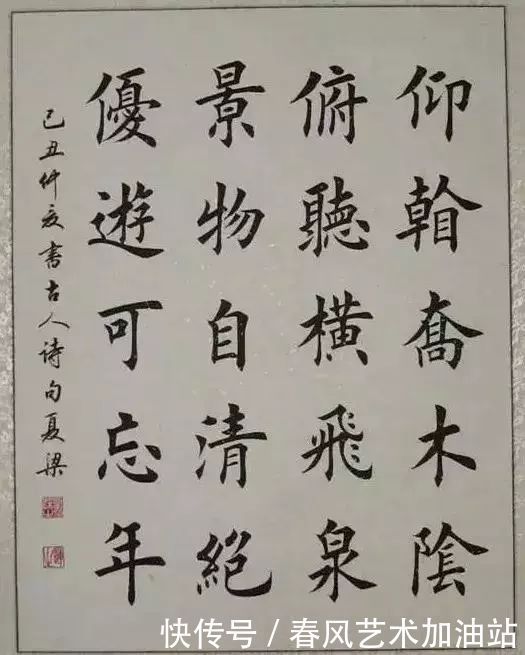 仰瞻喬木陰
俯聽橫飛泉
景物自清絕
優遊可忘年
己丑仲夏書古人诗句夏梁
快传号／春风艺术加油站